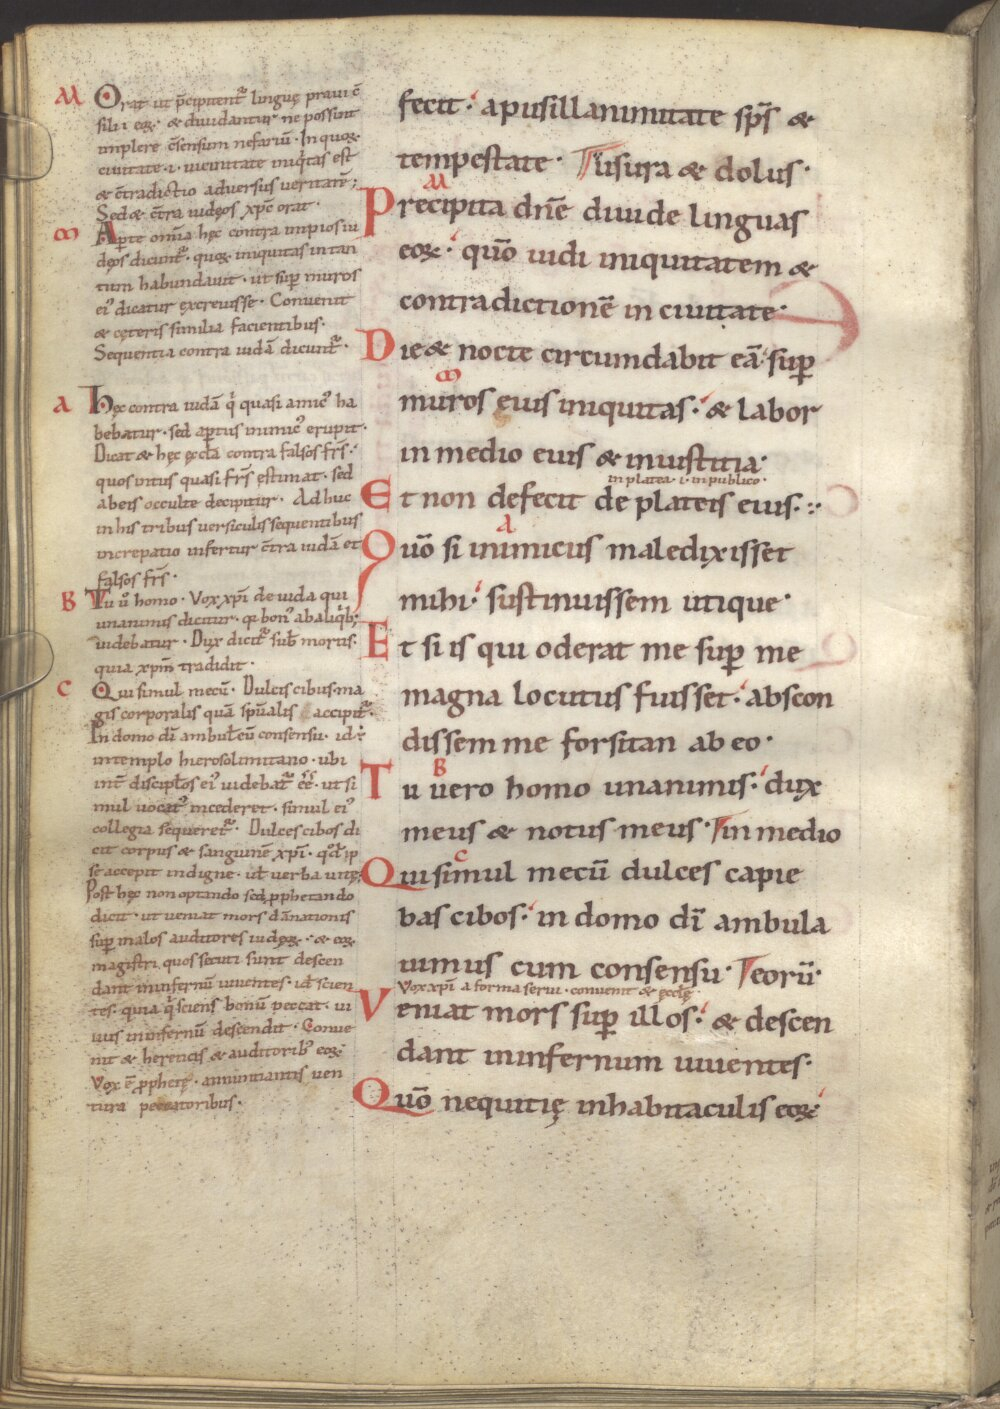 M Orat ut p̄cipitent᷑ linguę praui c̄
silii eoꝝ · & diuidantur ne possint
implere c̄sensum nefariū · In quoꝝ
ciuitate · i · uicinitate iniq̇tas est
& c̄tradictio aduersus ueritatē ;
Sed & c̄tra iudęos xp̄c orat ·
ꝏ Aꝑte omīa hęc contra impios iu
dęos dicunt᷑ · quoꝝ iniquitas in tan
tum habundauit · ut suꝑ muros
eiꝰ dicatur excreuisse · Conuenit
& cęteris similia facientibus ·
Sequentia contra iudā dicunt᷑ ·
A hęc contra iudā q̇ quasi amicꝰ ha
bebatur · sed aꝑtus inimicꝰ erupit ·
Dicat & hęc ęccl̄a contra falsos fr̄s ·
quos intus quasi fr̄s ęstimat · sed
ab eis occulte decipitur · Ad huc
in his tribus uersiculis sequentibus
increpatio infertur c̄tra iudā et
falsos fr̄s ·
B Tu u̇o homo · Vox xp̄i de iuda qui
unanimis dicitur · q bonꝰ ab aliq̇b;
uidebatur · Dux dicit᷑ sub̄ mortis ·
quia xp̄m tradidit ·
C Qui simul mecū · Dulcis cibus ma
gis corporalis quā sp̄ualis accipit᷑ ·
In domo dī ambul̄ eū consensu · id ē
in templo hierosolimitano · ubi
int̄ discipl̄os eiꝰ uidebat᷑ ēē · ut si
mul uocatꝰ incederet · simul eiꝰ
collegia sequeret᷑ · Dulces cibos di
cit corpus & sanguinē xp̄i · qd̄ ip
se accepit indigne · ul̄ uerba uitę ;
Post hęc non optando sed ꝓphetando
dicit · ut ueniat mors dānationis
suꝑ malos auditores iudęoꝝ · & eoꝝ
magistri quos secuti sunt descen
dant in infernū uiuentes · id ē scien
tes · quia q̇ sciens bonū peccat · ui
uus in infernū descendit · Conue
nit & hereticis & auditoribꝰ eoꝝ
Vox ē ꝓphetę · annuntiantis uen
tura peccatoribus ·
fecit · a pusillanimitate sp̄s &
tempestate · Usura & dolus ·
M
Precipita dn̄e diuide linguas
eoꝝ · quō uidi iniquitatem &
contradictionē in ciuitate ·
Die & nocte circumdabit eā suꝑ
ꝏ
muros eius iniquitas · & labor
in medio eius & iniustitia ·
in platea · i · in publico ·
Et non defecit de plateis eius ·
A
Quō si inimicus maledixisset
mihi · sustinuissem utique ·
Et si is qui oderat me suꝑ me
magna locutus fuisset · abscon
dissem me forsitan ab eo ·
B
Tu uero homo unanimis · dux
meus & notus meus · in medio
C
Qui simul mecū dulces capie
bas cibos · in domo dī ambula
uimus cum consensu · eorū ·
Vox xp̄i a forma serui · conuenit & ęccl̄ę
Veniat mors suꝑ illos · & descen
dant in infernum uiuentes ·
Quō nequitię in habitaculis eoꝝ